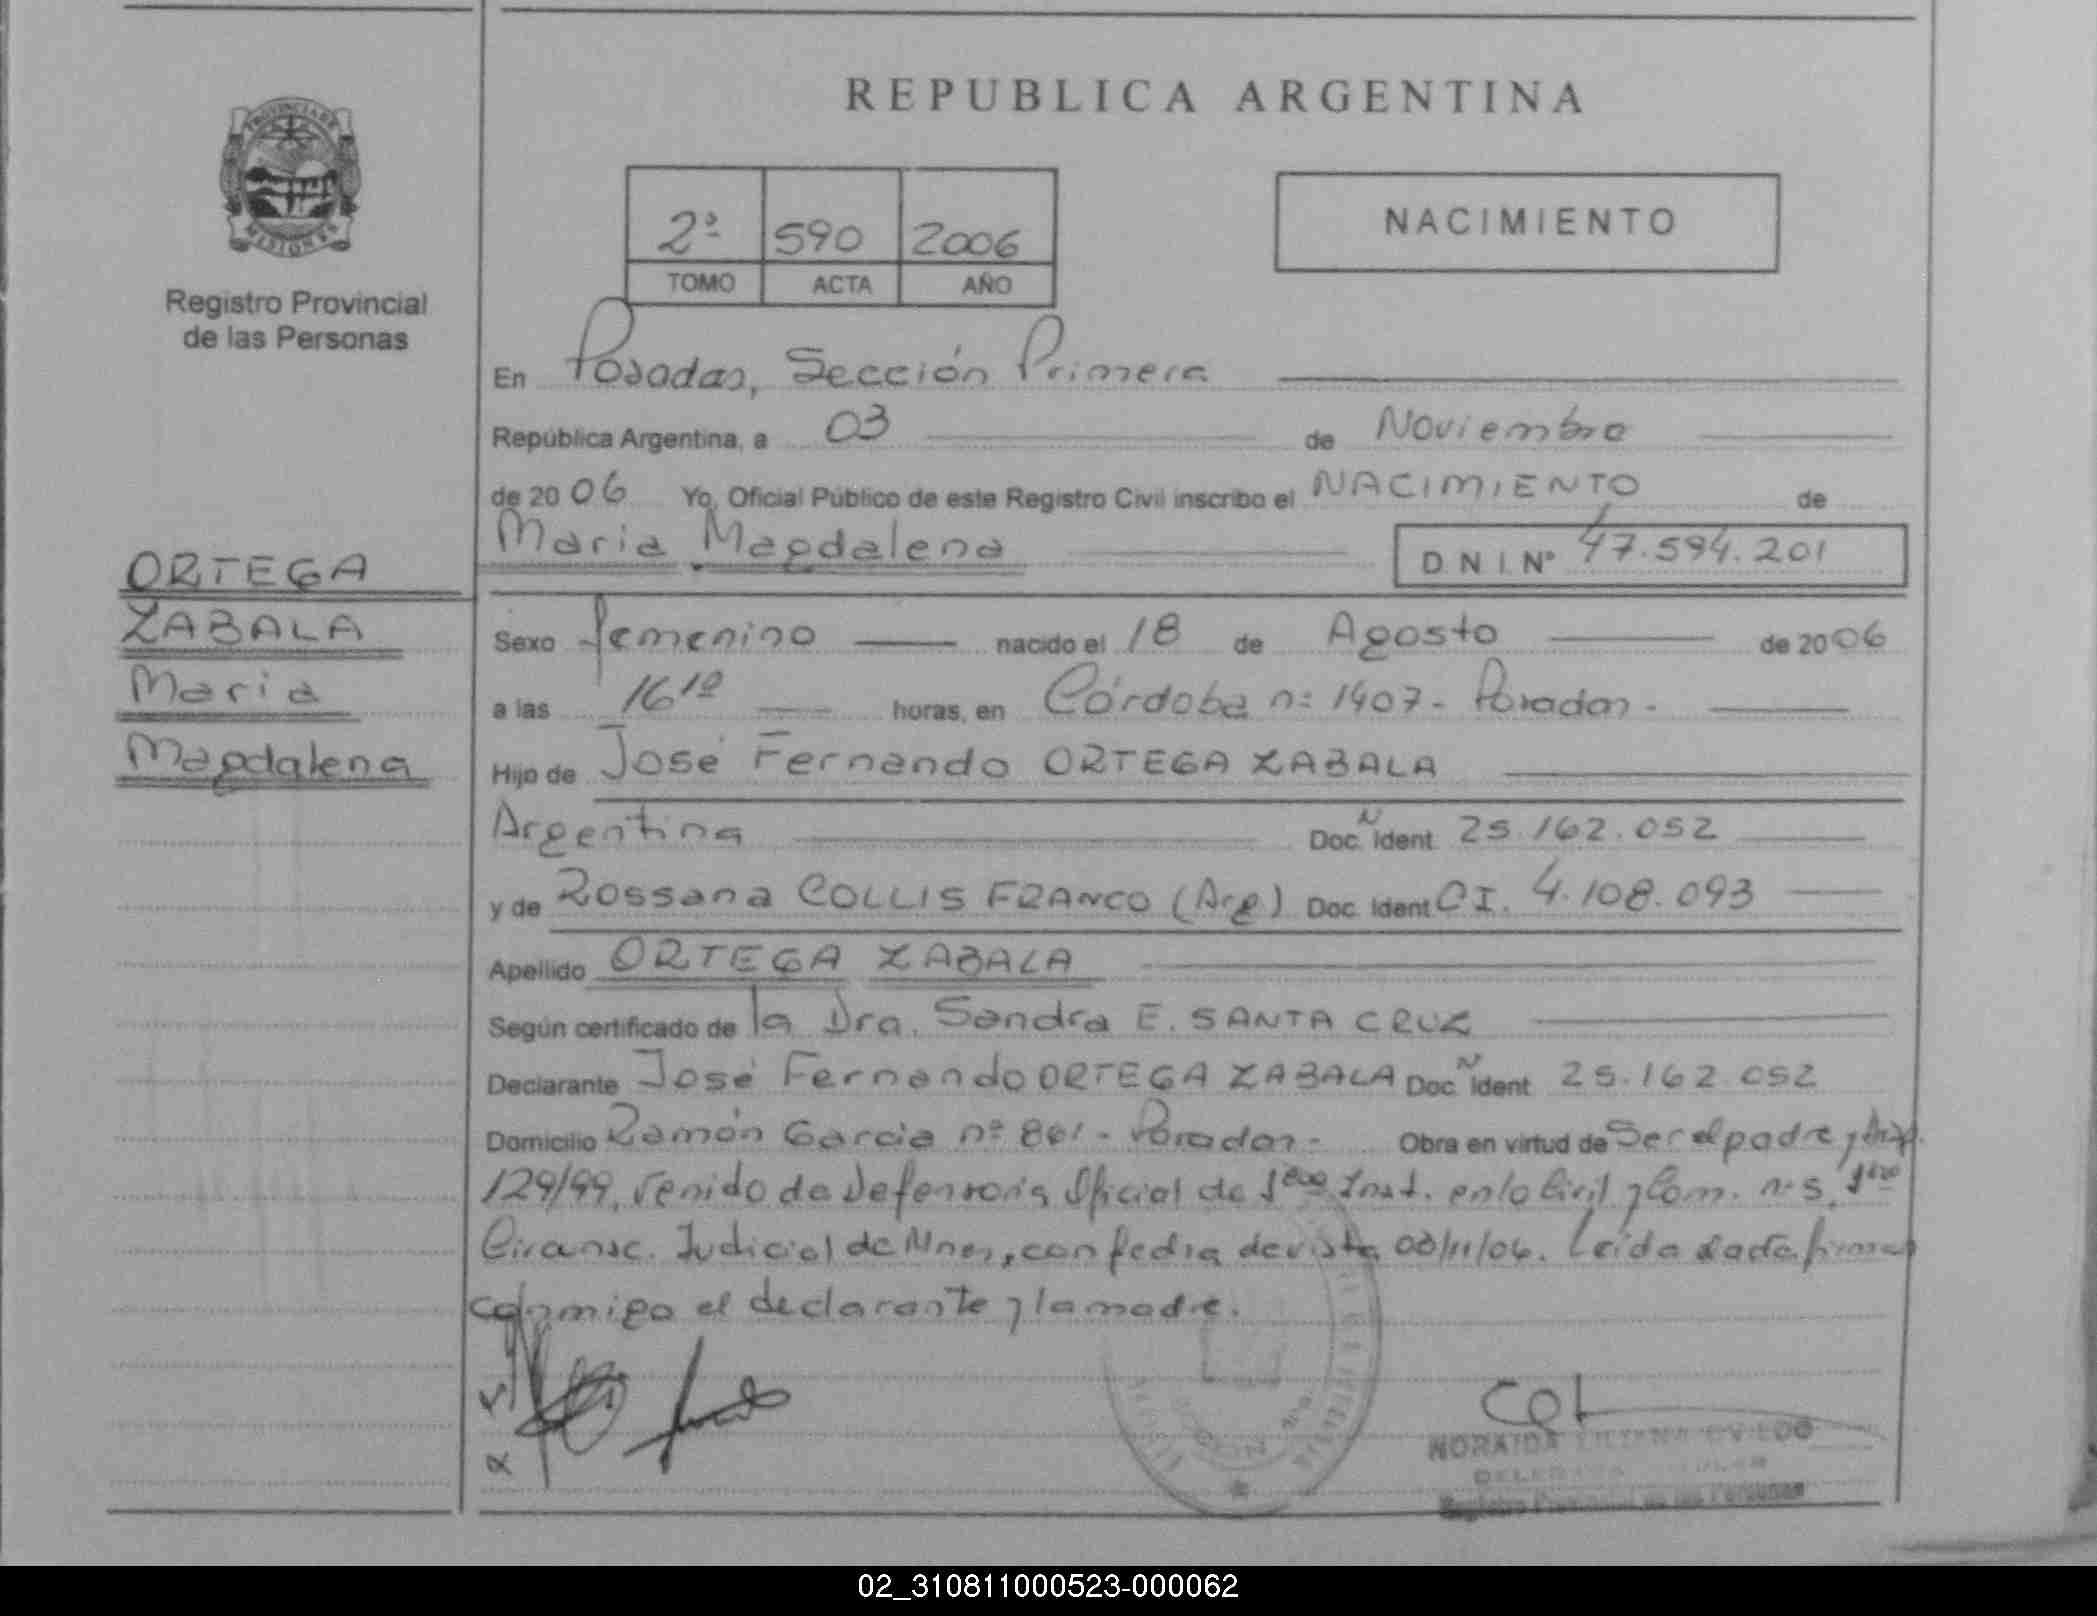 REPUBLICA ARGENTINA
PROVINCIA DE
MISIONES
Registro Provincial
de las Personas
2º 590 2006
TOMO ACTA AÑO
NACIMIENTO
En Posadas, Sección Primera
República Argentina, a 03 de Noviembre
de 2006 Yo, Oficial Público de este Registro Civil inscribo el NACIMIENTO de
Maria Magdalena D N I Nº 47.594.201
ORTEGA
ZABALA
Maria
Magdalena
Sexo femenino nacido el 18 de Agosto de 2006
a las 16 10 horas, en Córdoba nº 1407 - Posadas -
Hijo de José Fernando ORTEGA ZABALA
Argentina Doc. Ident N 25.162.052
y de Rossana COLLIS FRANCO (Arg) Doc. Ident CI. 4.108.093
Apellido ORTEGA ZABALA
Según certificado de la Dra. Sandra E. SANTA CRUZ
Declarante José Fernando ORTEGA ZABALA Doc. Ident N 25.162.052
Domicilio Ramón Garcia nº 861 - Posadas - Obra en virtud de Ser el padre y
129/99, venido de Defensoria Oficial de 1era Inst. en lo Civil y Com. nº 5, 1era
Circunsc. Judicial de Mnes, con fecha de vista 03/11/06. Leída
conmigo el declarante y la madre.
NORAIDA LILIANA OVIEDO
Registro Provincial de las Personas
02_310811000523-000062